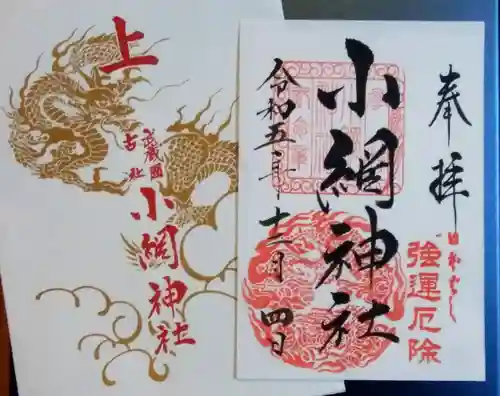 上
武蔵國
古社
小網神社
奉拝
強運厄除
小網神社
令和五年十二月四日